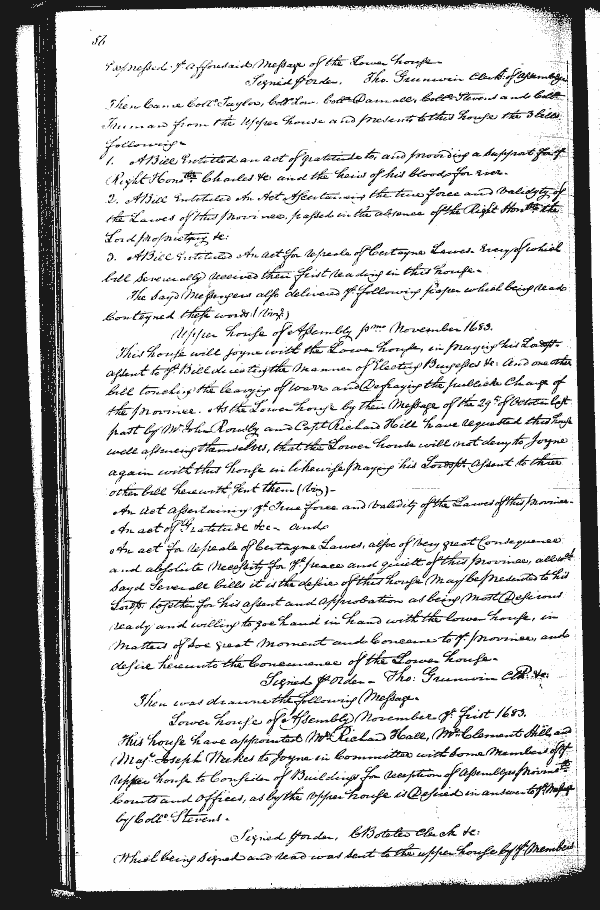 56
Expressed yᵉ afforesaid Message of the Lower house
Signed p order, Tho: Grunwin Clerk of Assembly
Then Came Collº Taylor, Collº Low, Collº Darnall, Collº Stevens and Collº
Truman from the Upper house and presents to this house the 3 bills
following
1. A Bill Entituled an act of gratitude to, and providing a Support for yᵉ
Right Honᵇˡᵉ Charles &c and the heirs of his blood for ever.
2. A Bill Entituled An Act Ascertaining the true force and validity of
the Lawes of this province, passed in the absence of the Right Honᵇˡᵉ the
Lord Proprietary &c:
3. A Bill Entituled An act for repeale of Certayne Lawes. Every of which
bill Severally received their first reading in this house.
The Sayd Messengers also delivered yᵉ following paper which being read
Conteyned these words (vizᵗ)
Upper house of Assembly pᵐᵒ November 1683.
This house will joyne with the Lower house, in praying his Lordsps
assent to yᵉ Bill directing the Manner of Electing Burgesses &c. And one other
bill touching the leavying of warr and Defraying the publick Charge of
the province. As the Lower house by their Message of the 29ᵗʰ of October last
past by Mr John Rousby and Capt Richard Hill have requested this house
well assureing themselves, that the Lower house will not deny to Joyne
again with this house in likewise praying his Lordsps assent to three
other bill herewith sent them (viz)
An act Assertaining yᵉ True force and validity of the Lawes of this province
An act of Gratitude &c and
An act for repeale of Certayne Lawes, also of very great Consequence
and absolute Necessity for yᵉ peace and quiett of this Province, all wᶜʰ
Sayd Severall bills it is the desire of this house May be presented to his
Lordsp together for his assent and approbation as being Most Desirous
ready and willing to goe hand in hand with the Lower house, in
Matters of soe great Moment and Concerne to yᵉ province, and
desire hereunto the Concurrence of the Lower house.
Signed p order Tho: Grunwin Clk. &c.
Then was drawne the following Message
Lower house of Assembly November yᵉ first 1683.
This house have appointed Mr Richard Hall, Mr Clement Hill and
Majr Joseph Weekes to Joyne in Committee with some Members of yᵉ
upper house to Consider of Buildings for reception of Assemblys, Provinciall
Courts and Offices, as by the upper house is Desired in answer to yᵉ Message
by Collº Stevens.
Signed p order, C Boteler Clerk &c:
Which being Signed and read was sent to the upper house by yᵉ Members